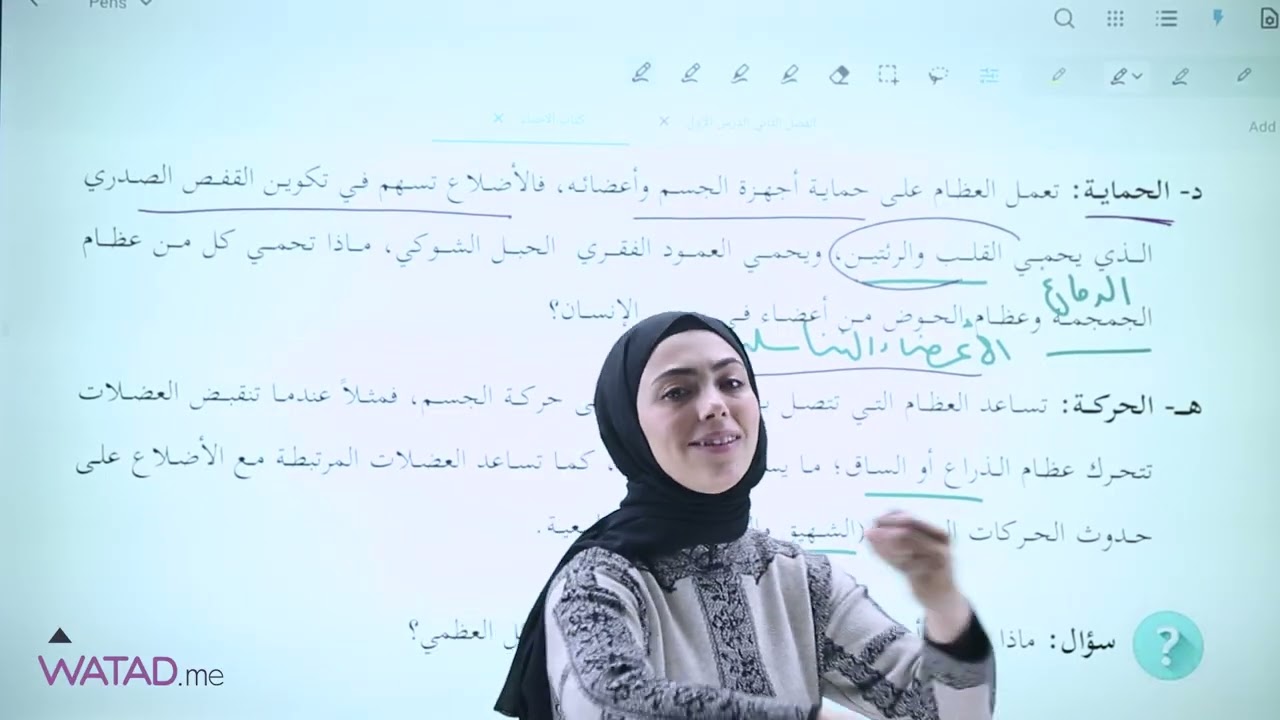 Pens
كتاب الاحياء
الفصل الثاني الدرس الاول
Add
د- الحماية: تعمل العظام على حماية أجهزة الجسم وأعضائه، فالأضلاع تسهم في تكوين القفص الصدري
الذي يحمي القلب والرئتين، ويحمي العمود الفقري الحبل الشوكي، ماذا تحمي كل من عظام
الدماغ
الجمجمة وعظام الحوض من أعضاء الإنسان؟
الأعضاء
هـ- الحركة: تساعد العظام التي تتصل حركة الجسم، فمثلاً عندما تنقبض العضلات
تتحرك عظام الذراع أو الساق؛ ما كما تساعد العضلات المرتبطة مع الأضلاع على
حدوث الحركات (الشهيق
سؤال: ماذا العظمي؟
?
WATAD.me